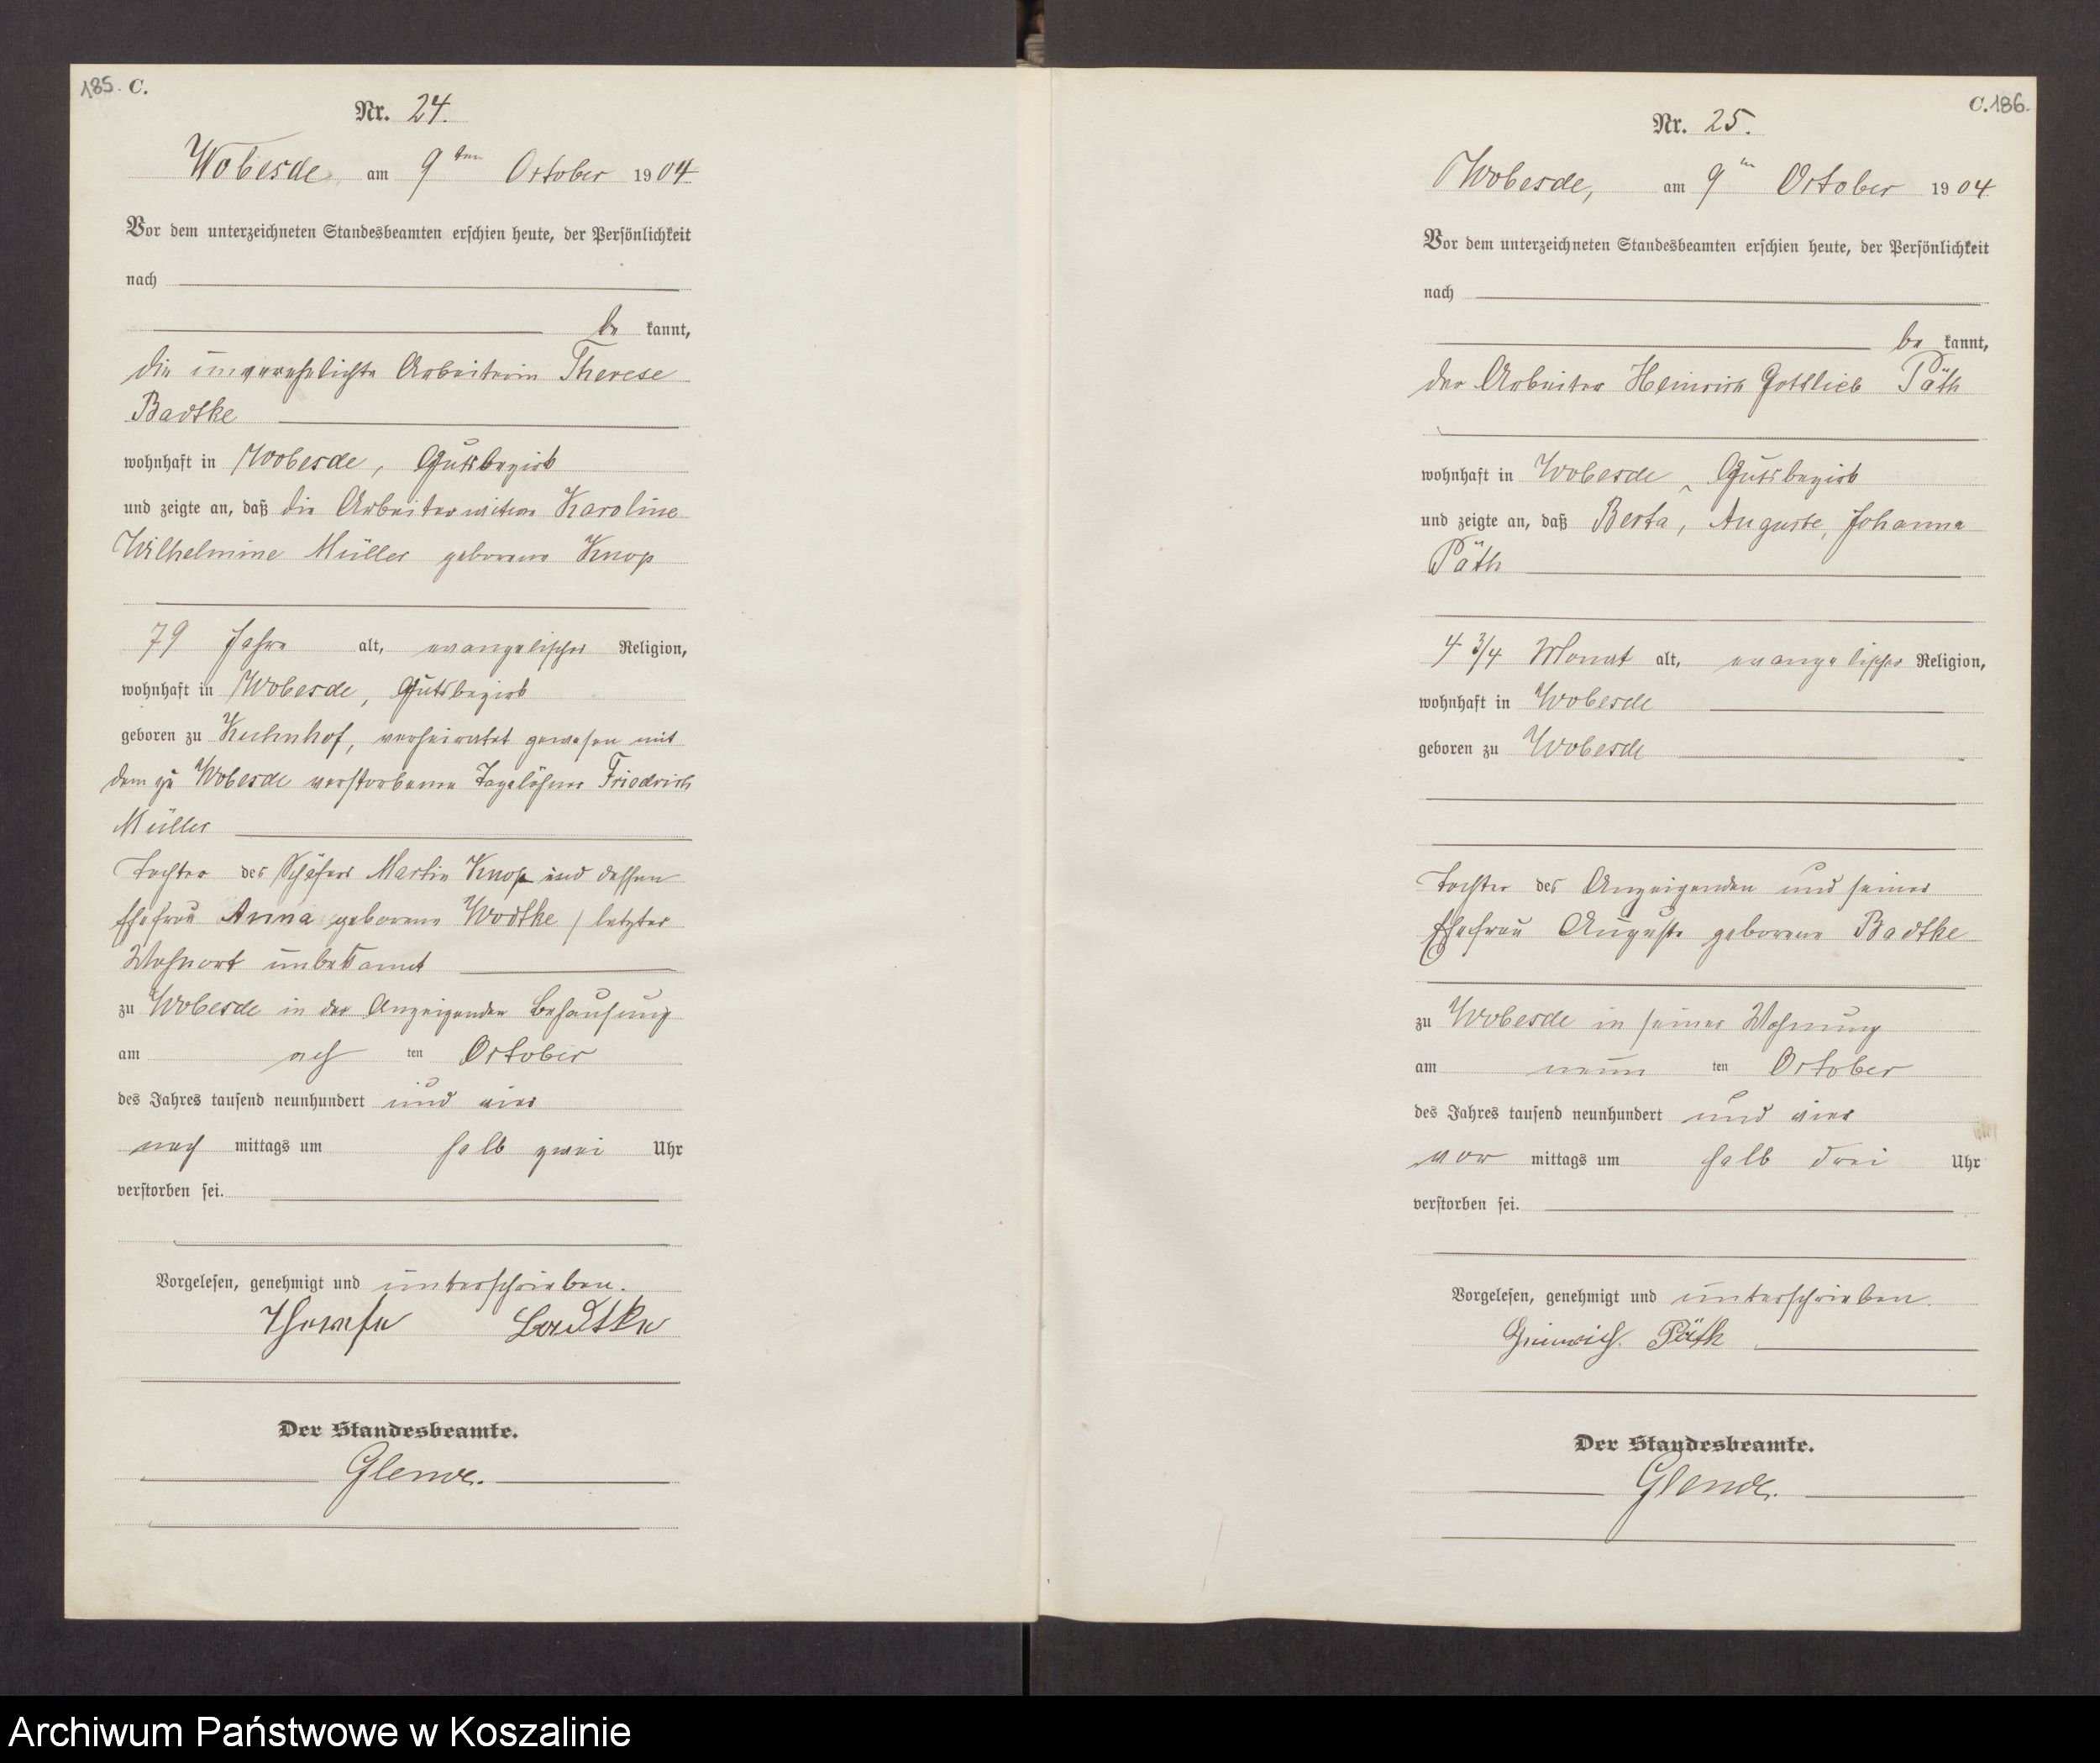 185. C.
Nr. 24.
Wobesde, am 9ten October 1904
Vor dem unterzeichneten Standesbeamten erschien heute, der Persönlichkeit
nach
be kannt,
die unverehelichte Arbeiterin Therese
Badtke
wohnhaft in Wobesde, Gutsbezirk
und zeigte an, daß die Arbeiterwitwe Karoline
Wilhelmine Müller geborene Knop
79 Jahre alt, evangelischer Religion,
wohnhaft in Wobesde, Gutsbezirk
geboren zu Kuhnhof, verheiratet gewesen mit
dem zu Wobesde verstorbenen Tagelöhner Friedrich
Müller
Tochter des Schäfers Martin Knop und dessen
Ehefrau Anna geborene Wodtke / letzter
Wohnort unbekannt
zu Wobesde in der Anzeigenden Behausung
am ach ten October
des Jahres tausend neunhundert und vier
nach mittags um halb zwei Uhr
verstorben sei.
Vorgelesen, genehmigt und unterschrieben.
Therese Badtke
Der Standesbeamte.
C. 186.
Nr. 25.
Wobesde, am 9ten October 1904
Vor dem unterzeichneten Standesbeamten erschien heute, der Persönlichkeit
nach
be kannt,
der Arbeiter Heinrich Gottlieb Päth
wohnhaft in Wobesde, Gutsbezirk
und zeigte an, daß Berta, Auguste, Johanna
Päth
4 3/4 Monat alt, evangelischer Religion,
wohnhaft in Wobesde
geboren zu Wobesde
Tochter des Anzeigenden und seiner
Ehefrau Auguste geborene Badtke
zu Wobesde in seiner Wohnung
am neun ten October
des Jahres tausend neunhundert und vier
vor mittags um halb drei Uhr
verstorben sei.
Vorgelesen, genehmigt und unterschrieben.
Heinrich Päth
Der Standesbeamte.
Archiwum Państwowe w Koszalinie